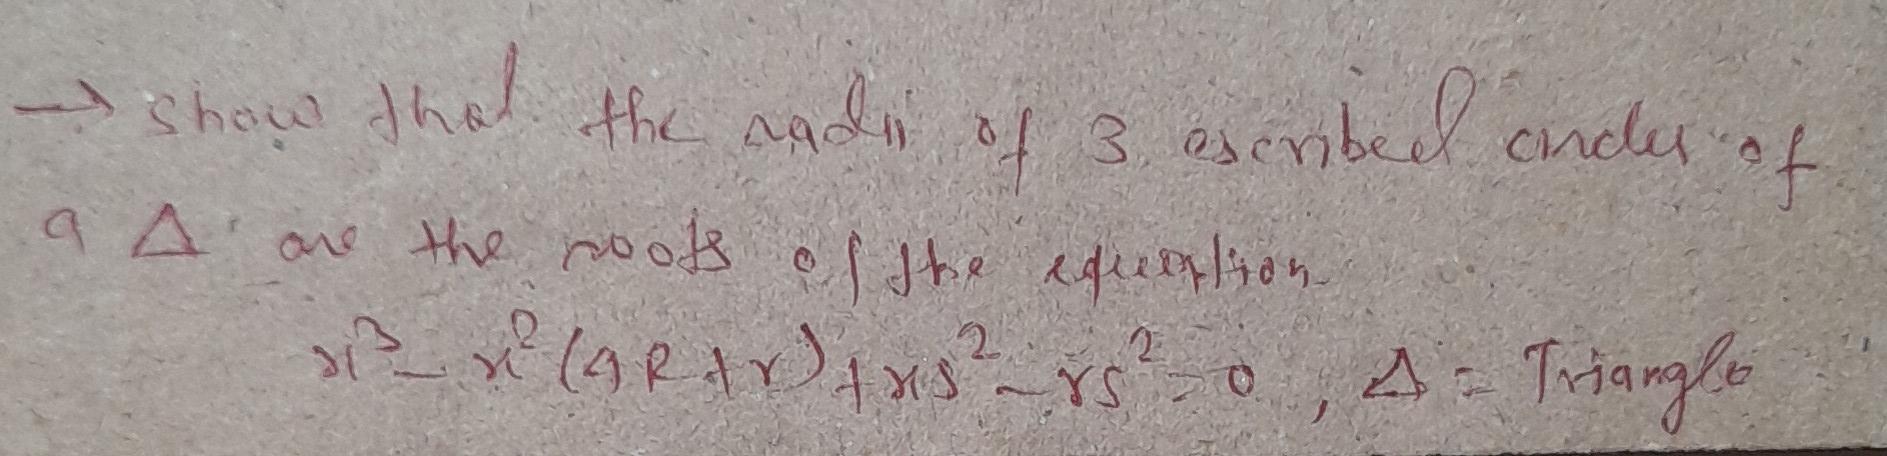 → show that the radii of 3 escribed circles of
a Δ are the roots of the equation
x³ - x² (4R + r) + xs² - rs² = 0 , Δ = Triangle